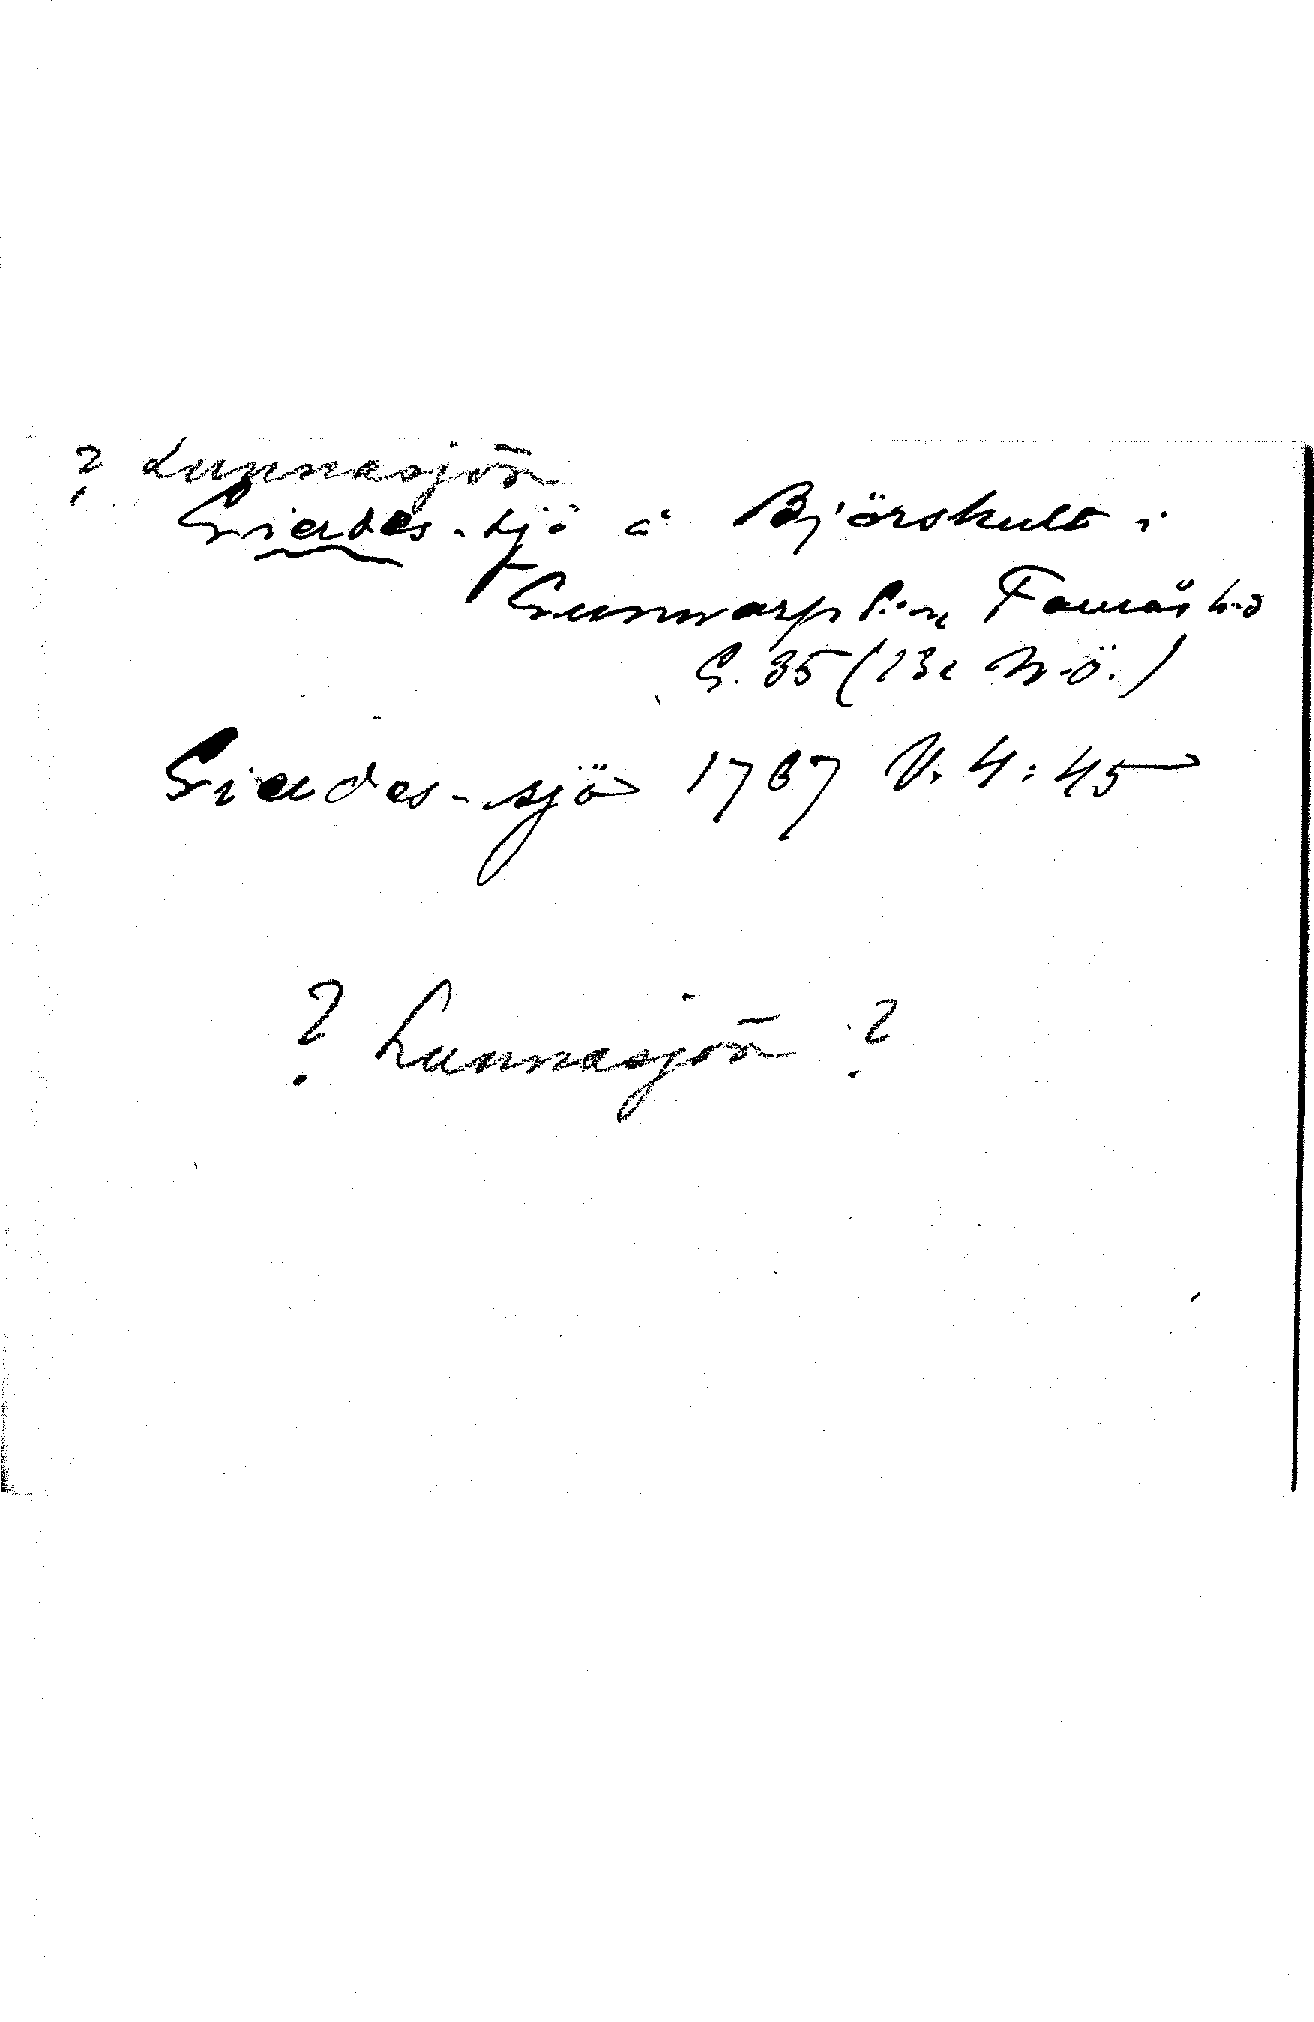 ? Lunnasjön
Gierdes-sjö å Björskult i
Gunnarp s:n Fauråsh-d
G. 35 (13c N.Ö.)
Giedes-sjö 1767 V. 4:45
? Lunnasjön ?